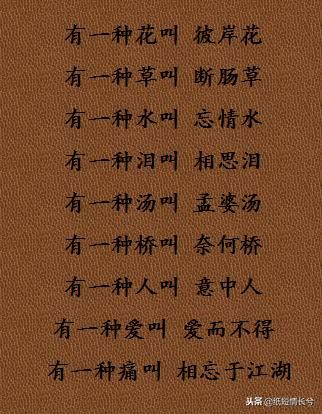 有一种花叫 彼岸花
有一种草叫 断肠草
有一种水叫 忘情水
有一种泪叫 相思泪
有一种汤叫 孟婆汤
有一种桥叫 奈何桥
有一种人叫 意中人
有一种爱叫 爱而不得
有一种痛叫 相忘于江湖
头条 @纸短情长兮